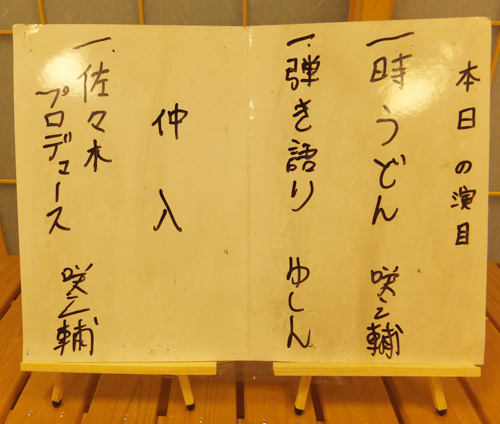 本日の演目
一 時うどん 咲之輔
一. 弾き語り ゆしん
仲入
一. 佐々木
プロデュース 咲之輔